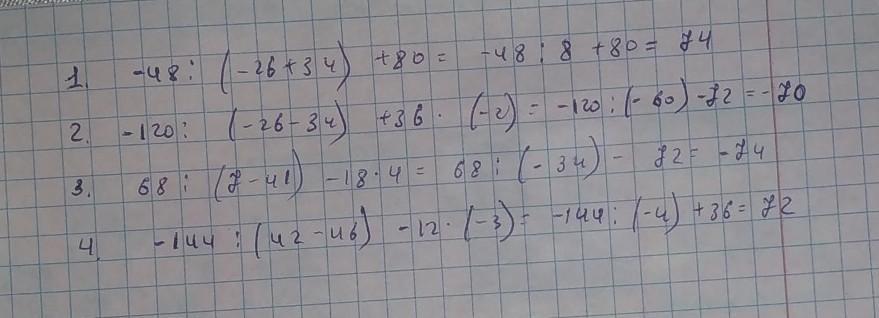 1. -48 : (-26+34) +80 = -48 : 8 +80 = 74
2. -120 : (-26-34) +36 · (-2) = -120 : (-60) -72 = -70
3. 68 : (7-41) -18·4 = 68 : (-34) - 72 = -74
4. -144 : (42-46) -12· (-3) = -144 : (-4) +36 = 72